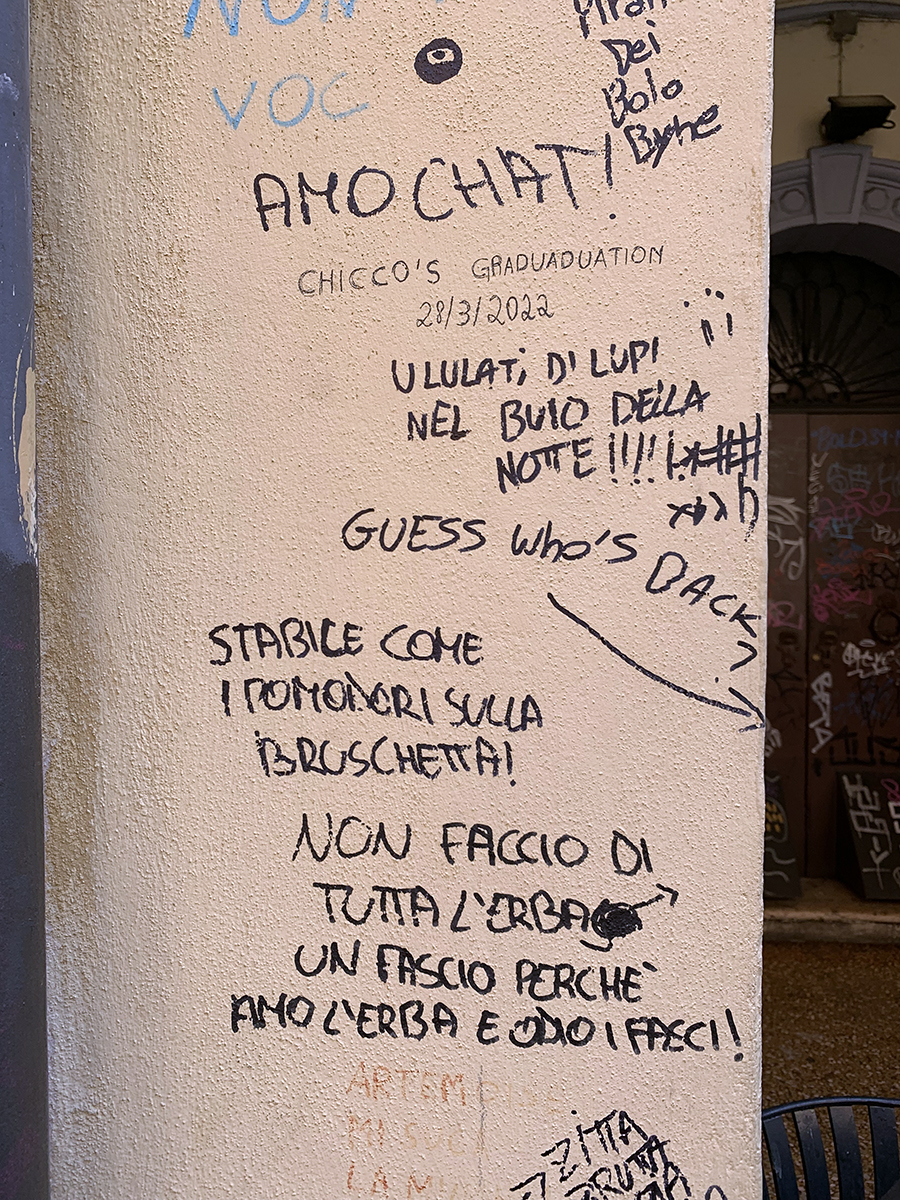 NON
VOC
Dei
Bolo
Byne
AMO CHAT!
CHICCO'S GRADUADUATION
28/3/2022
ULULATi DI LUPI
NEL BUIO DELLA
NOTTE !!!!
GUESS who's BACK?
STABILE COME
I POMODORI SULLA
BRUSCHETTA!
NON FACCIO DI
TUTTA L'ERBA
UN FASCIO PERCHÈ
AMO L'ERBA E ODIO I FASCI!
ARTEM
MI SUC
LA MIA
ZITTA
BRUTTA